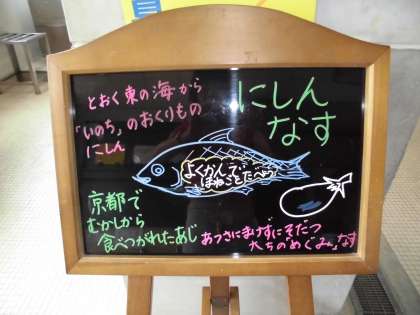 とおく東の海から
「いのち」のおくりもの
にしん
にしん
なす
よくかんで
ほねごとたべよう
京都で
むかしから
食べつがれたあじ
あつさにまけずにそだつ
大ちの「めぐみ」なす